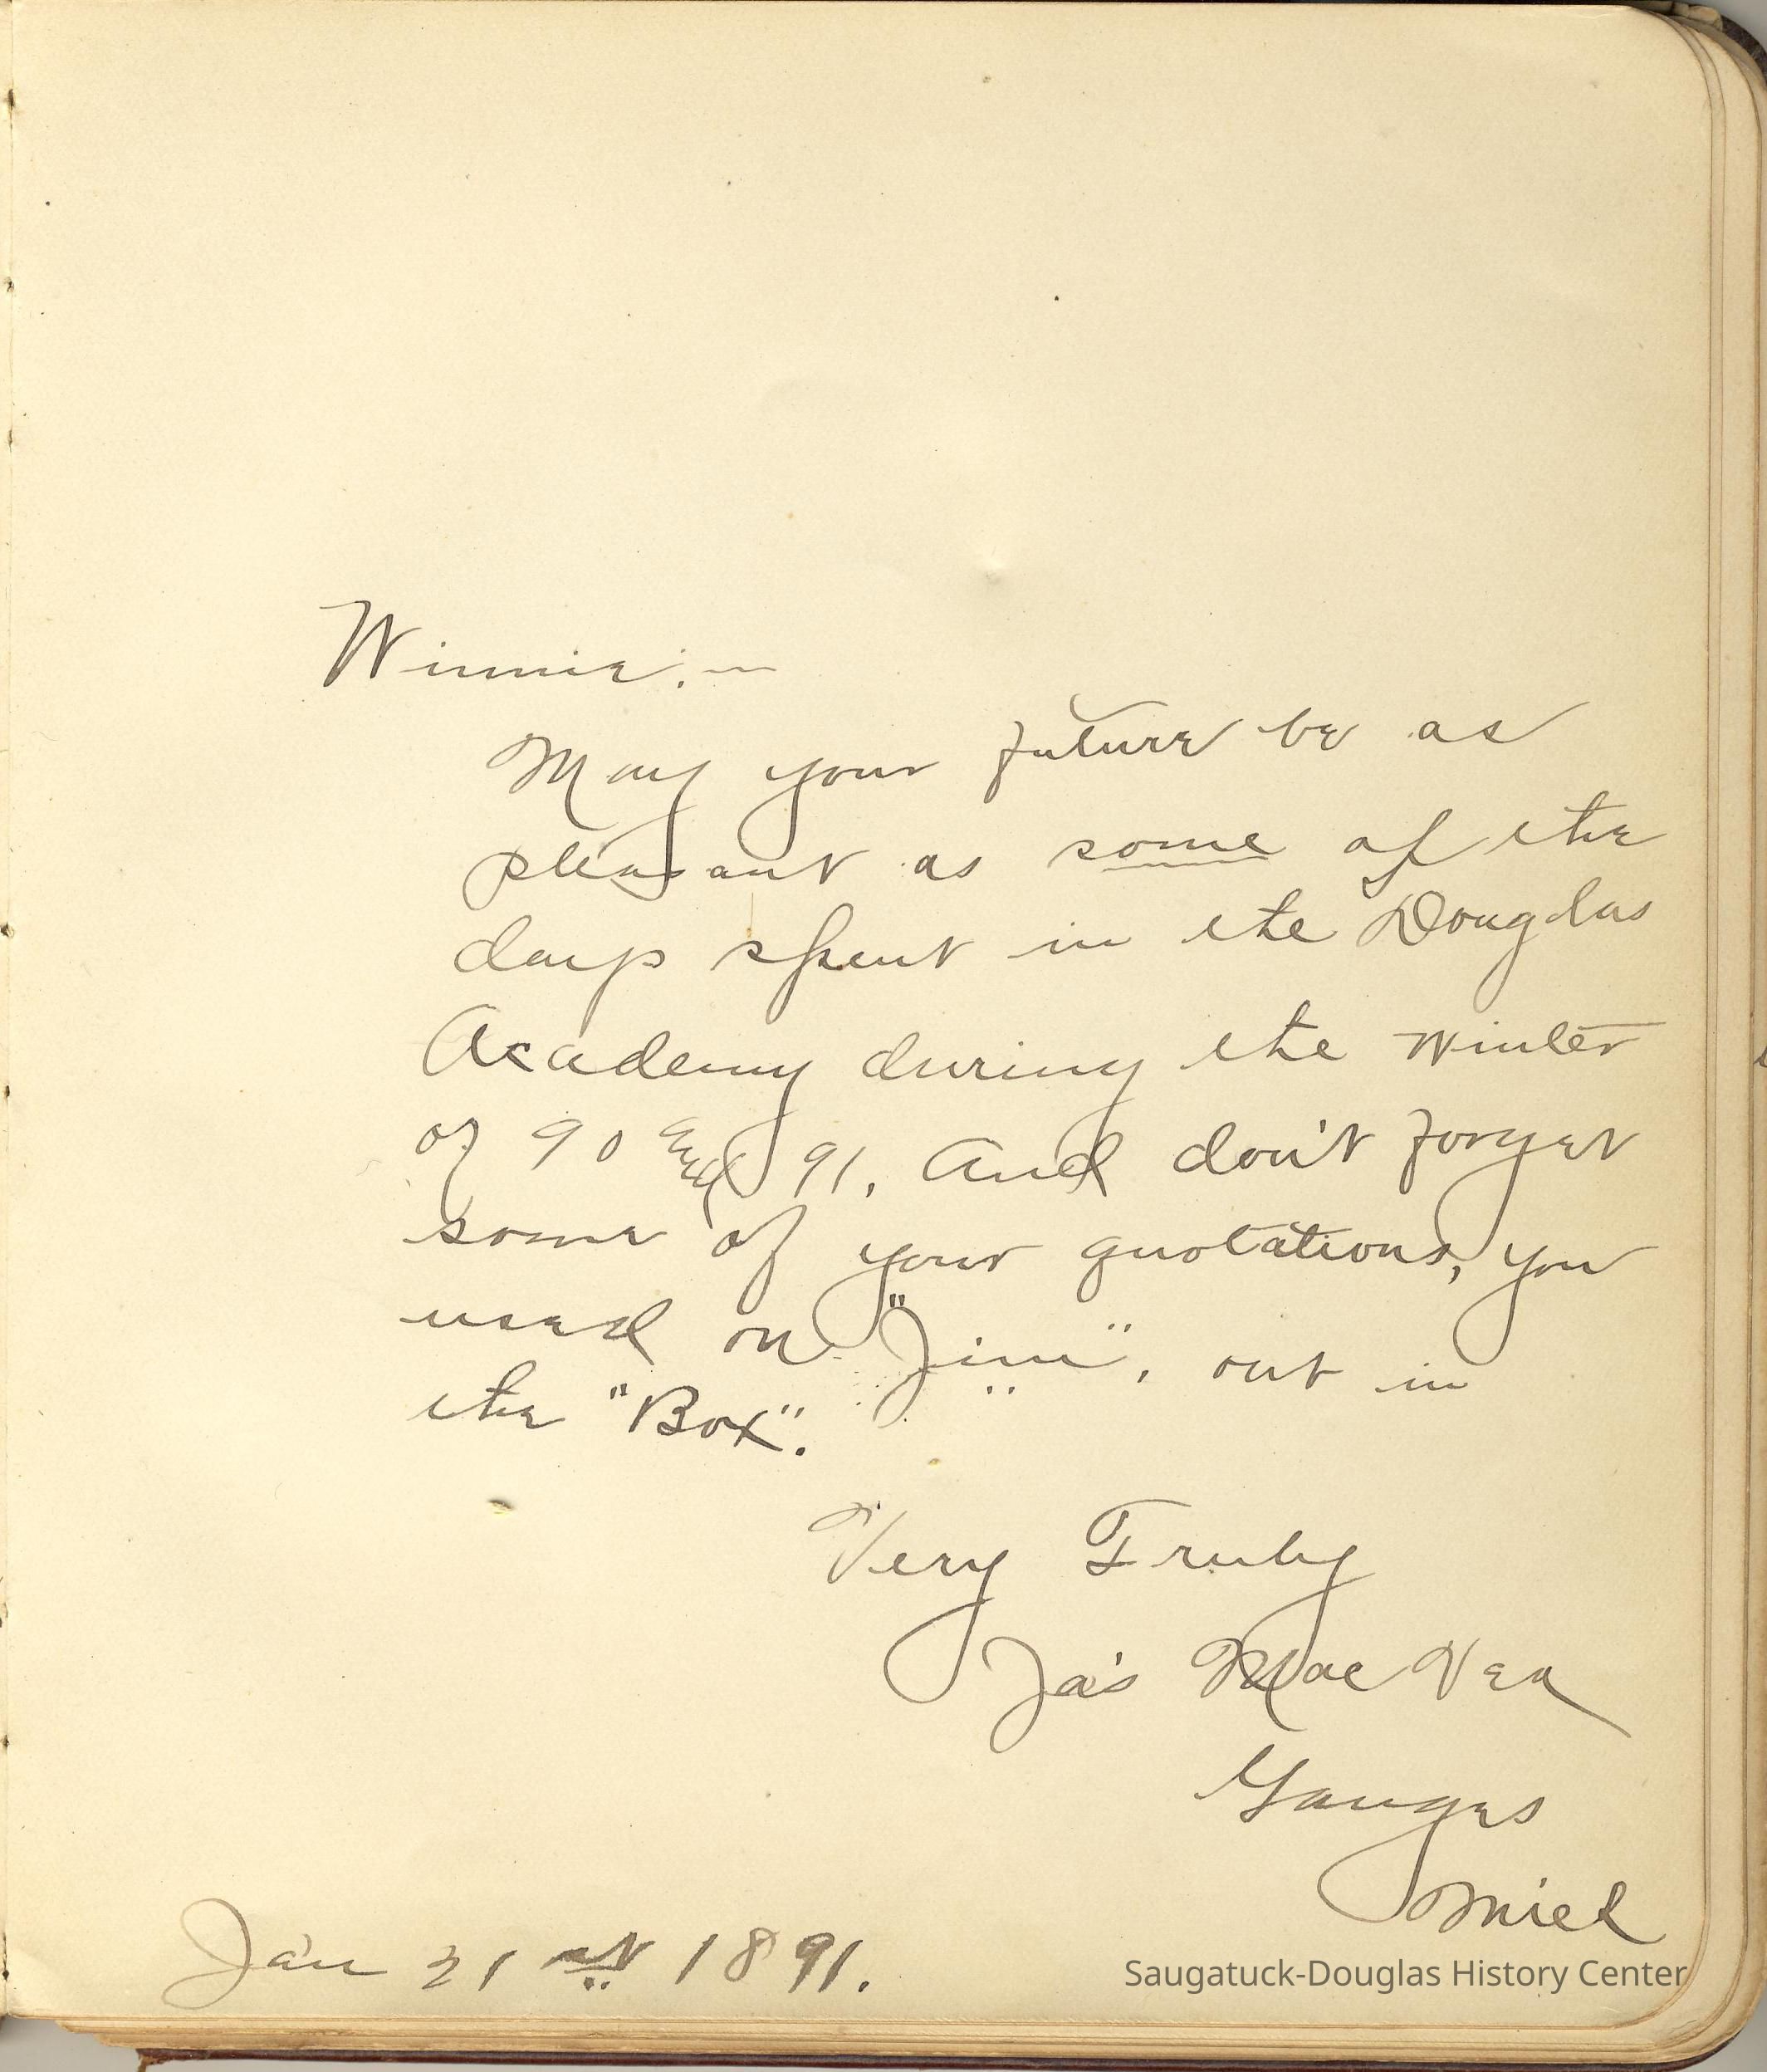 Winnie:—
May your future be as
pleasant as some of the
days spent in the Douglas
Academy during the winter
of 90 and 91. And don't forget
some of your quotations, you
used on "Jim", out in
the "Box".
Very Truly
Ja's MacVea
Ganges
Mich
Jan 21st 1891.
Saugatuck-Douglas History Center